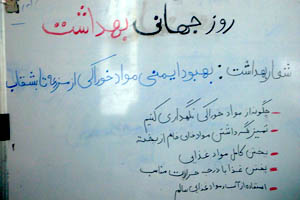 روز جهانی بهداشت
شعار بهداشت : بهبود ایمنی مواد خوراکی از مزرعه تا بشقاب
– چگونه از مواد خوراکی نگهداری کنیم
– تمیز نگه داشتن مواد غذایی خام از پخته
– پختن کامل مواد غذایی
– پختن غذا با درجه حرارت مناسب
– استفاده از آب و مواد غذایی سالم